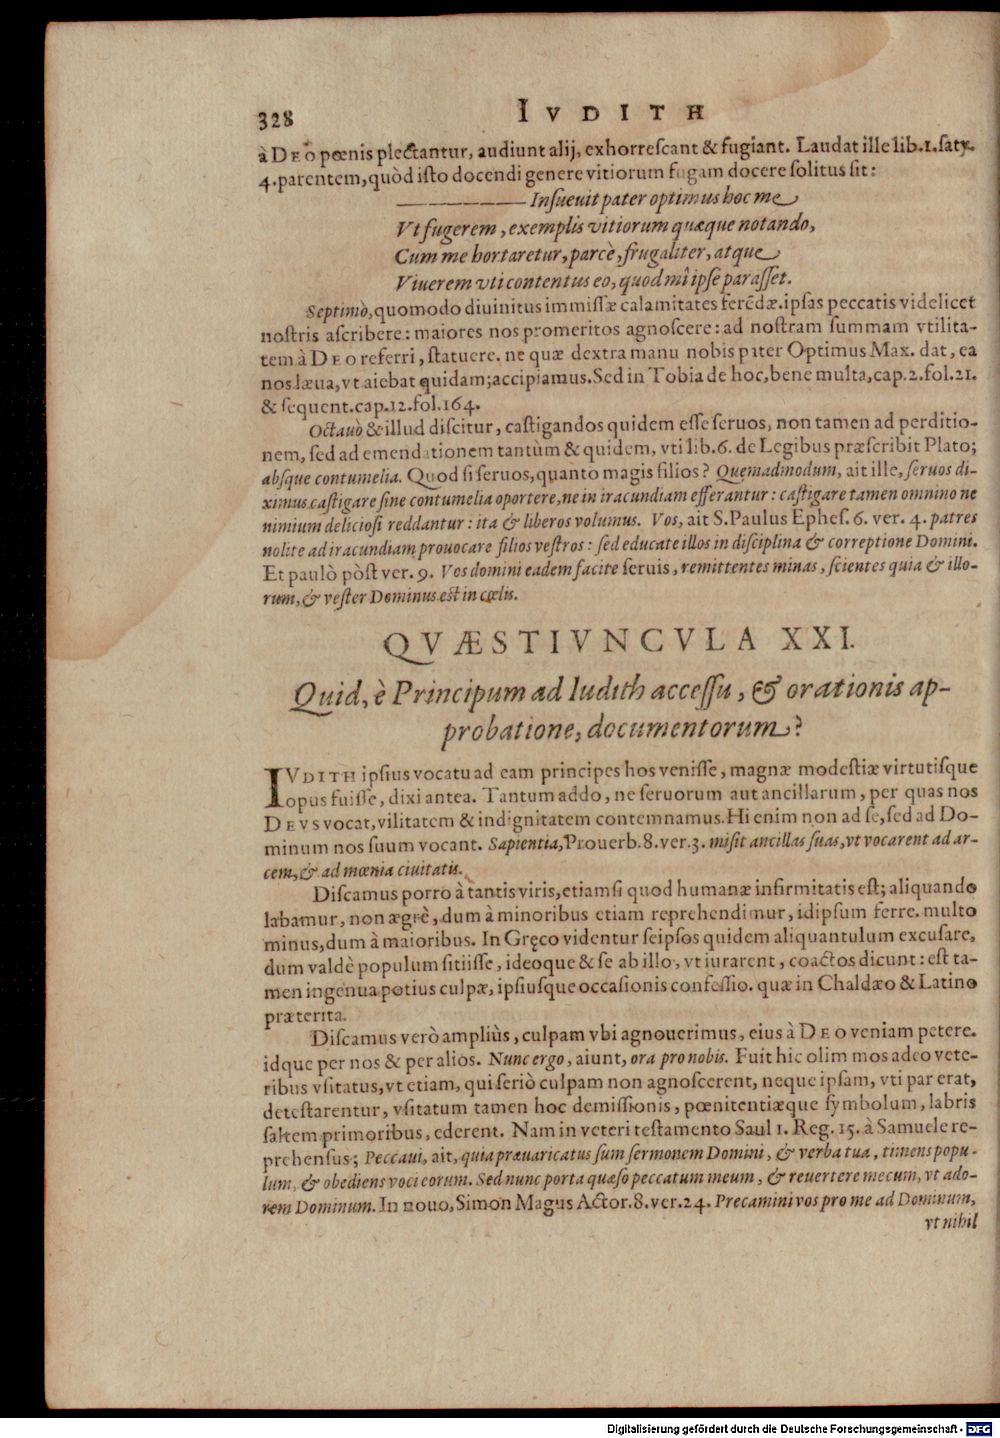 328 IVDITH
à DEO pœnis plectantur, audiunt alij, exhorrescant & fugiant. Laudat ille lib.1.saty.
4.parentem, quòd isto docendi genere vitiorum fugam docere solitus sit:
————— Insueuit pater optimus hoc me
Vt fugerem, exemplis vitiorum quæque notando,
Cum me hortaretur, parcè, frugaliter, atque
Viuerem vti contentus eo, quod mî ipse parasset.
Septimò, quomodo diuinitus immissæ calamitates ferēdæ. ipsas peccatis videlicet
nostris ascribere: maiores nos promeritos agnoscere: ad nostram summam vtilita-
tem à DEO referri, statuere. ne quæ dextra manu nobis pater Optimus Max. dat, ea
nos læua, vt aiebat quidam; accipiamus. Sed in Tobia de hoc, bene multa, cap.2.fol.21.
& sequent.cap.12.fol.164.
Octauò & illud discitur, castigandos quidem esse seruos, non tamen ad perditio-
nem, sed ad emendationem tantùm & quidem, vti lib.6. de Legibus præscribit Plato;
absque contumelia. Quod si seruos, quanto magis filios? Quemadmodum, ait ille, seruos di-
ximus castigare sine contumelia oportere, ne in iracundiam efferantur: castigare tamen omnino ne
nimium deliciosi reddantur: ita & liberos volumus. Vos, ait S. Paulus Ephes. 6. ver. 4. patres
nolite ad iracundiam prouocare filios vestros: sed educate illos in disciplina & correptione Domini.
Et paulò pòst ver. 9. Vos domini eadem facite seruis, remittentes minas, scientes quia & illo-
rum, & vester Dominus est in cœlis.
QVÆSTIVNCVLA XXI.
Quid, è Principum ad Iudith accessu, & orationis ap-
probatione, documentorum?
IVDITH ipsius vocatu ad eam principes hos venisse, magnæ modestiæ virtutisque
opus fuisse, dixi antea. Tantum addo, ne seruorum aut ancillarum, per quas nos
DEVS vocat, vilitatem & indignitatem contemnamus. Hi enim non ad se, sed ad Do-
minum nos suum vocant. Sapientia, Prouerb.8.ver.3. misit ancillas suas, vt vocarent ad ar-
cem, & ad mœnia ciuitatis.
Discamus porro à tantis viris, etiamsi quod humanæ infirmitatis est; aliquando
labamur, non ægrè, dum à minoribus etiam reprehendimur, idipsum ferre. multo
minus, dum à maioribus. In Gręco videntur seipsos quidem aliquantulum excusare,
dum valdè populum sitiisse, ideoque & se ab illo, vt iurarent, coactos dicunt: est ta-
men ingenua potius culpæ, ipsiusque occasionis confessio. quæ in Chaldæo & Latino
præterita.
Discamus verò ampliùs, culpam vbi agnouerimus, eius à DEO veniam petere.
idque per nos & per alios. Nunc ergo, aiunt, ora pro nobis. Fuit hic olim mos adeo vete-
ribus vsitatus, vt etiam, qui seriò culpam non agnoscerent, neque ipsam, vti par erat,
detestarentur, vsitatum tamen hoc demissionis, pœnitentiæque symbolum, labris
saltem primoribus, ederent. Nam in veteri testamento Saul 1. Reg. 15. à Samuele re-
prehensus; Peccaui, ait, quia præuaricatus sum sermonem Domini, & verba tua, timens popu-
lum, & obediens voci eorum. Sed nunc porta quæso peccatum meum, & reuertere mecum, vt ado-
rem Dominum. In nouo, Simon Magus Actor.8.ver.24. Precamini vos pro me ad Dominum,
vt nihil
Digitalisierung gefördert durch die Deutsche Forschungsgemeinschaft - DFG